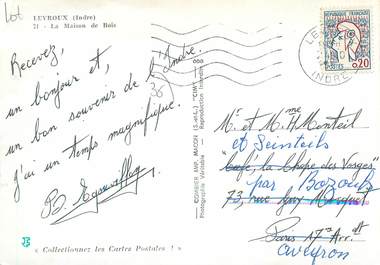 Lot
LEVROUX (Indre)
71 - La Maison de Bois
Recevez,
un bonjour et,
un bon souvenir de l'Indre.
j'ai un temps magnifique.
36
COMBIER IMP. MACON (S.-et-L.) "CIM"
Photographie Véritable - Reproduction Interdite
REPUBLIQUE FRANÇAISE
0,20
POSTES
INDRE
Mr et Mme H Monteil
et
"Café, la Chope des Vosges"
par Bozouls
73, rue Guy Môquet
Paris 17me Arr.dt
Aveyron
« Collectionnez les Cartes Postales ! »